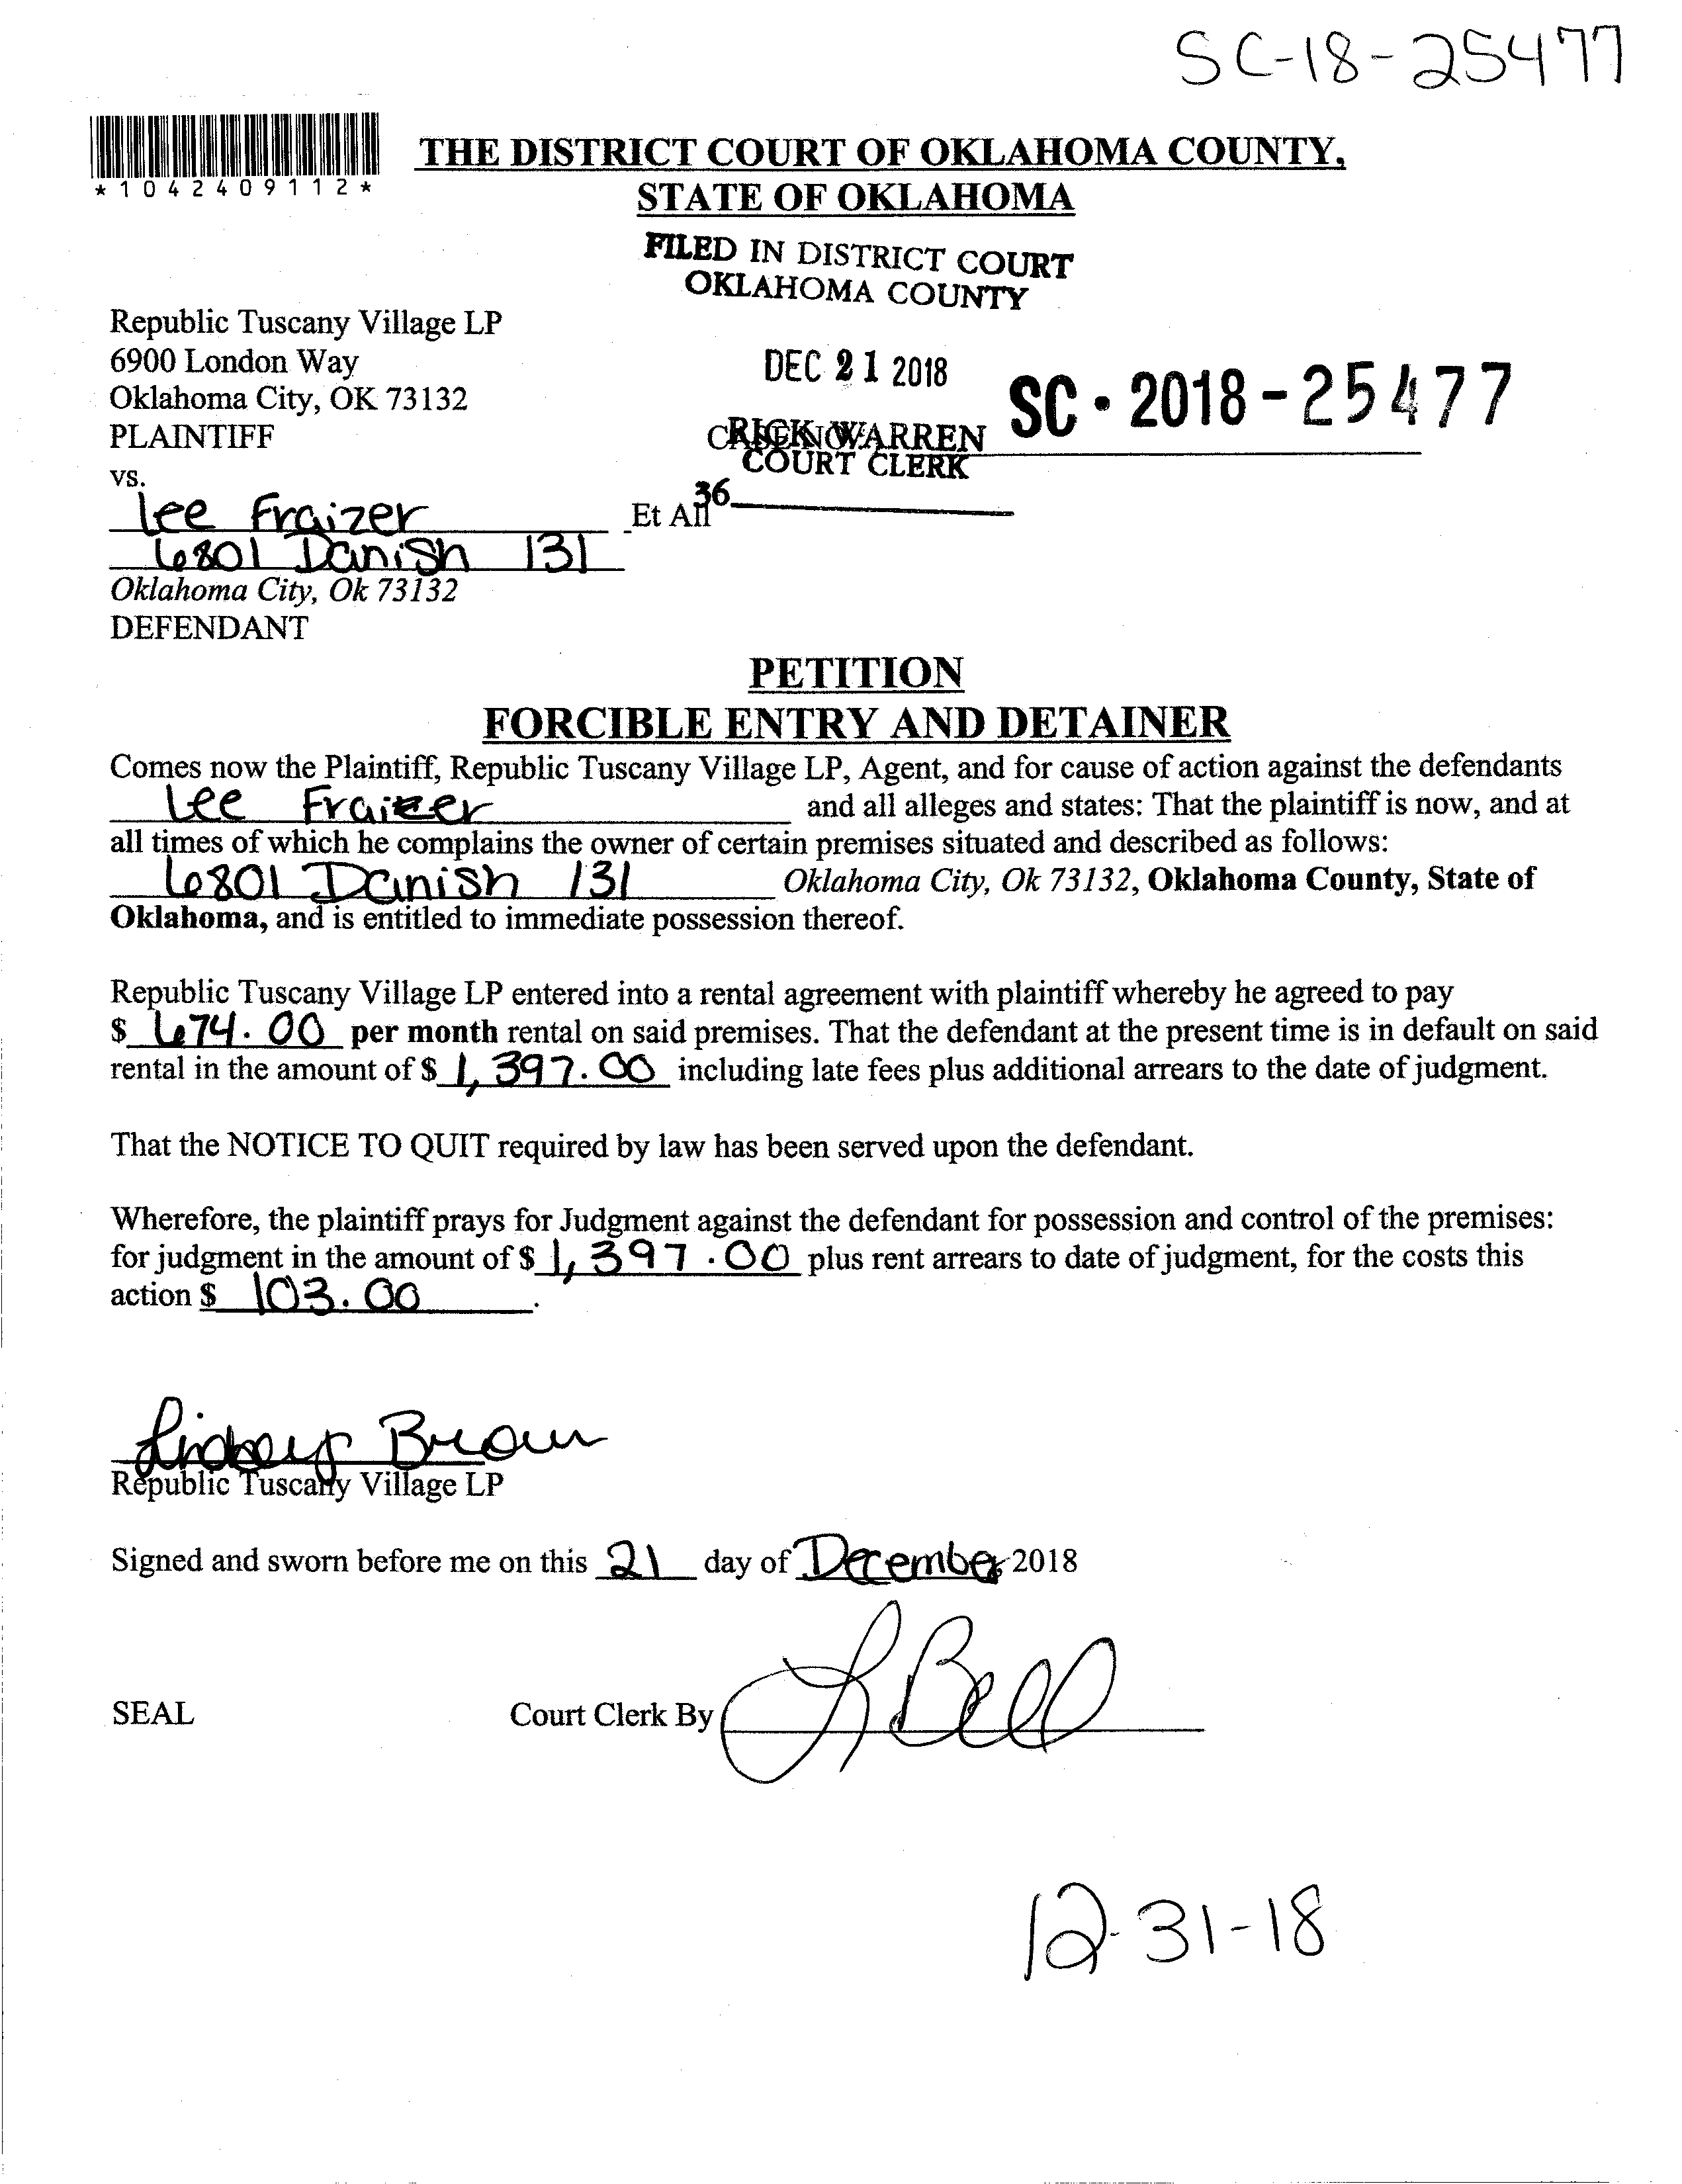 SC-18-25477
*1042409112*
THE DISTRICT COURT OF OKLAHOMA COUNTY,
STATE OF OKLAHOMA
FILED IN DISTRICT COURT
OKLAHOMA COUNTY
Republic Tuscany Village LP
6900 London Way
Oklahoma City, OK 73132
PLAINTIFF
DEC 21 2018
SC · 2018-25477
RICK WARREN
COURT CLERK
36
vs.
Lee Fraizer Et All
6801 Danish 131
Oklahoma City, Ok 73132
DEFENDANT
PETITION
FORCIBLE ENTRY AND DETAINER
Comes now the Plaintiff, Republic Tuscany Village LP, Agent, and for cause of action against the defendants
Lee Fraizer and all alleges and states: That the plaintiff is now, and at
all times of which he complains the owner of certain premises situated and described as follows:
6801 Danish 131 Oklahoma City, Ok 73132, Oklahoma County, State of
Oklahoma, and is entitled to immediate possession thereof.
Republic Tuscany Village LP entered into a rental agreement with plaintiff whereby he agreed to pay
$ 674.00 per month rental on said premises. That the defendant at the present time is in default on said
rental in the amount of $ 1,397.00 including late fees plus additional arrears to the date of judgment.
That the NOTICE TO QUIT required by law has been served upon the defendant.
Wherefore, the plaintiff prays for Judgment against the defendant for possession and control of the premises:
for judgment in the amount of $ 1,397.00 plus rent arrears to date of judgment, for the costs this
action $ 103.00.
Lindsey Brown
Republic Tuscany Village LP
Signed and sworn before me on this 21 day of December 2018
SEAL Court Clerk By L Bell
12-31-18